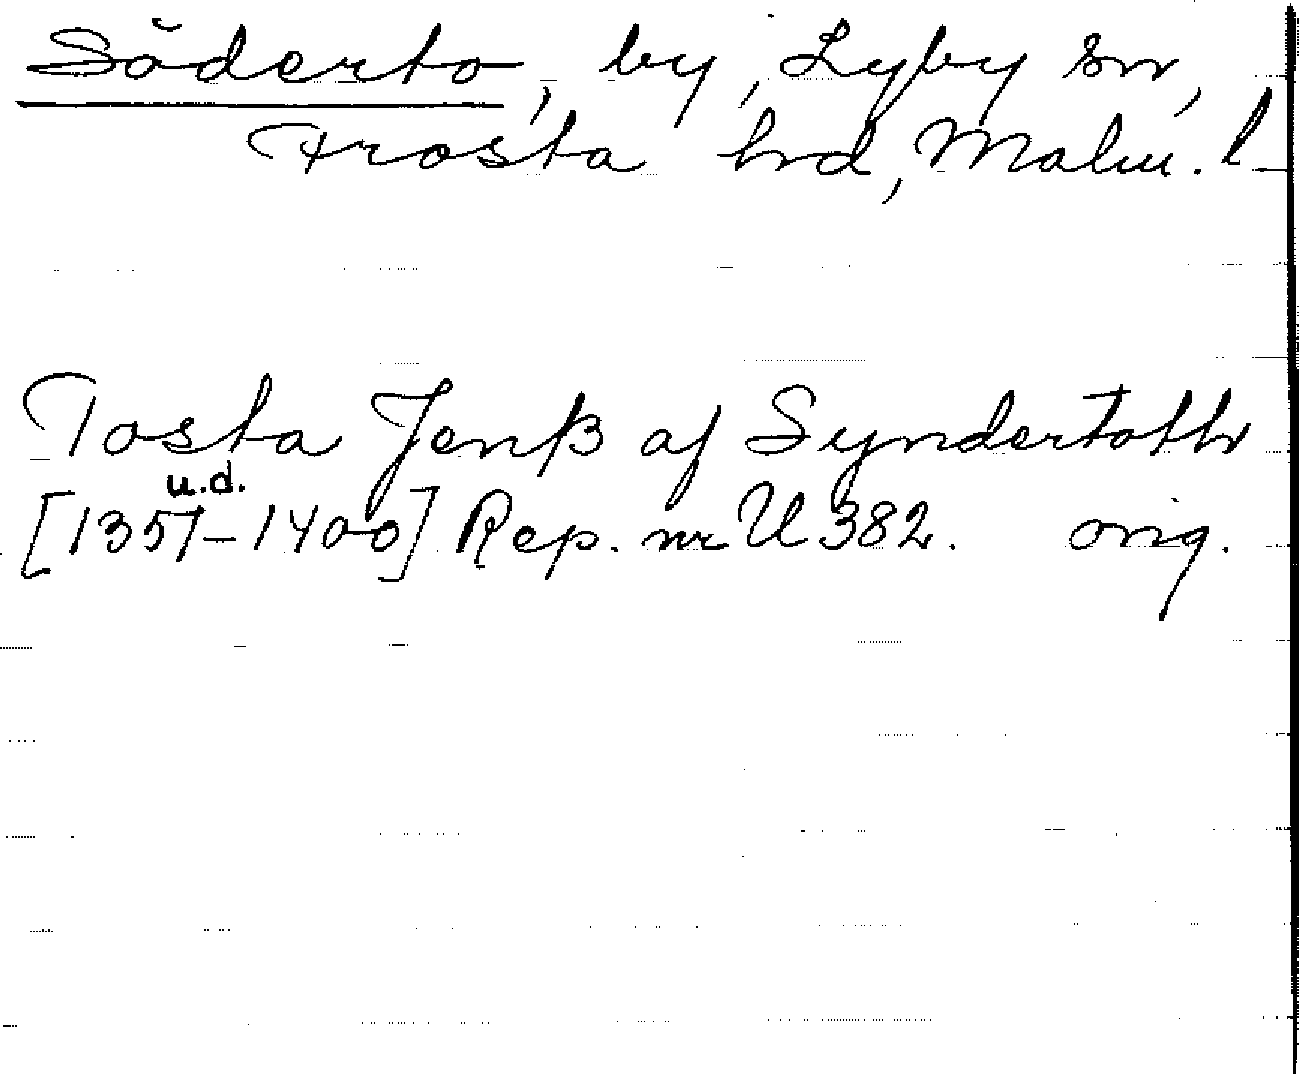 Söderto, by, Lyby sn,
Frosta hrd, Malm. l
Tosta Jenß af Syndertoth
u.d.
[1351-1400] Rep. nr U 382. orig.